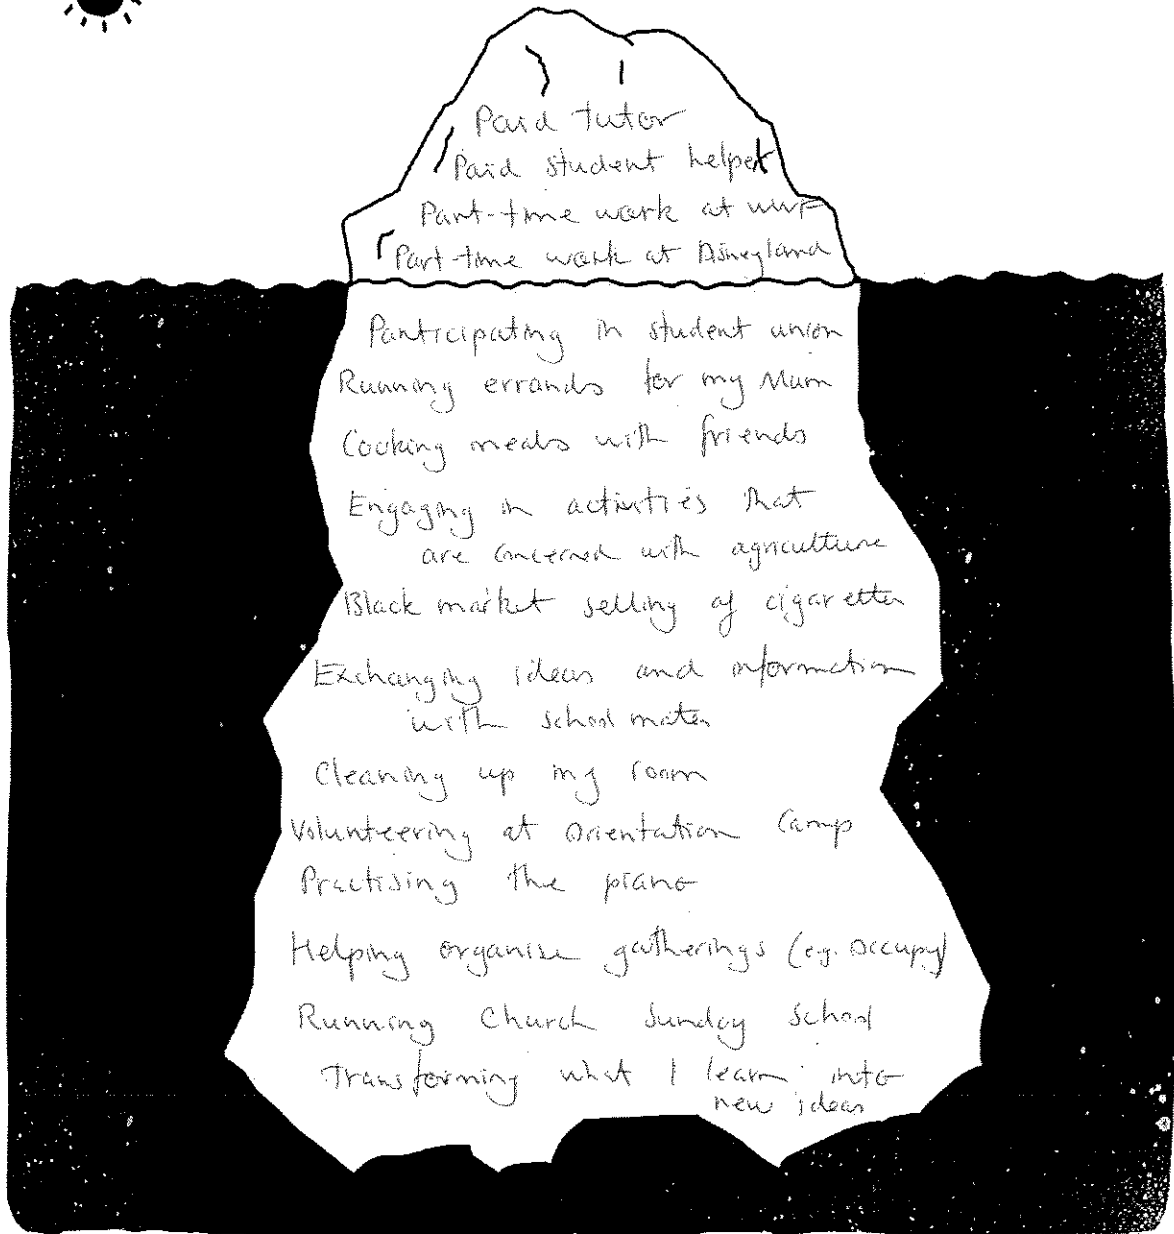 Paid tutor
Paid student helper
Part-time work at WWF
Part-time work at Disneyland
Participating in student union
Running errands for my Mum
Cooking meals with friends
Engaging in activities that
are concerned with agriculture
Black market selling of cigarettes
Exchanging ideas and information
with school mates
Cleaning up my room
Volunteering at Orientation Camp
Practising the piano
Helping organise gatherings (e.g. Occupy)
Running Church Sunday School
Transforming what I learn into
new ideas